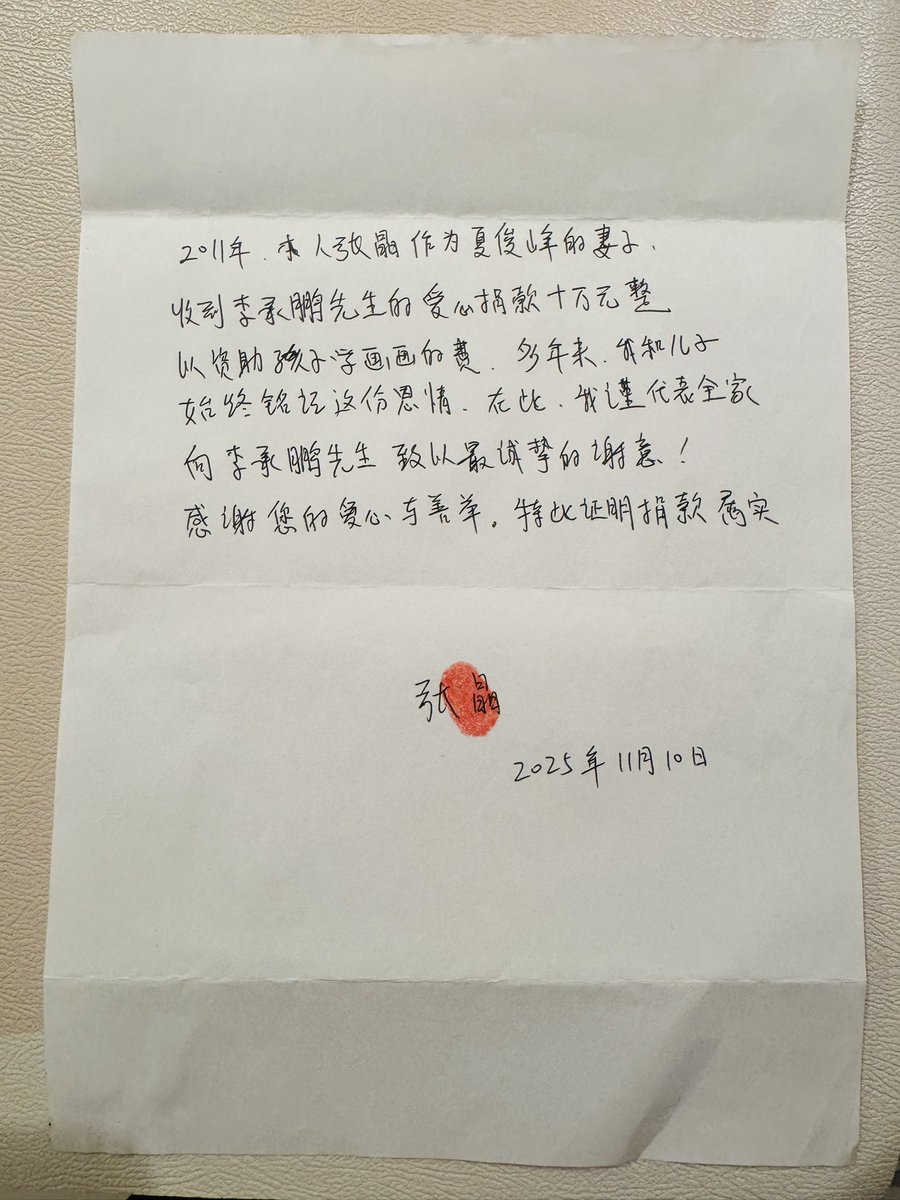 2011年.本人张晶作为夏俊峰的妻子.
收到李承鹏先生的爱心捐款十万元整
以资助孩子学画画的费.多年来.我和儿子
始终铭记这份恩情.在此.我谨代表全家
向李承鹏先生致以最诚挚的谢意!
感谢您的爱心与善举。特此证明捐款属实
张晶
2025年11月10日